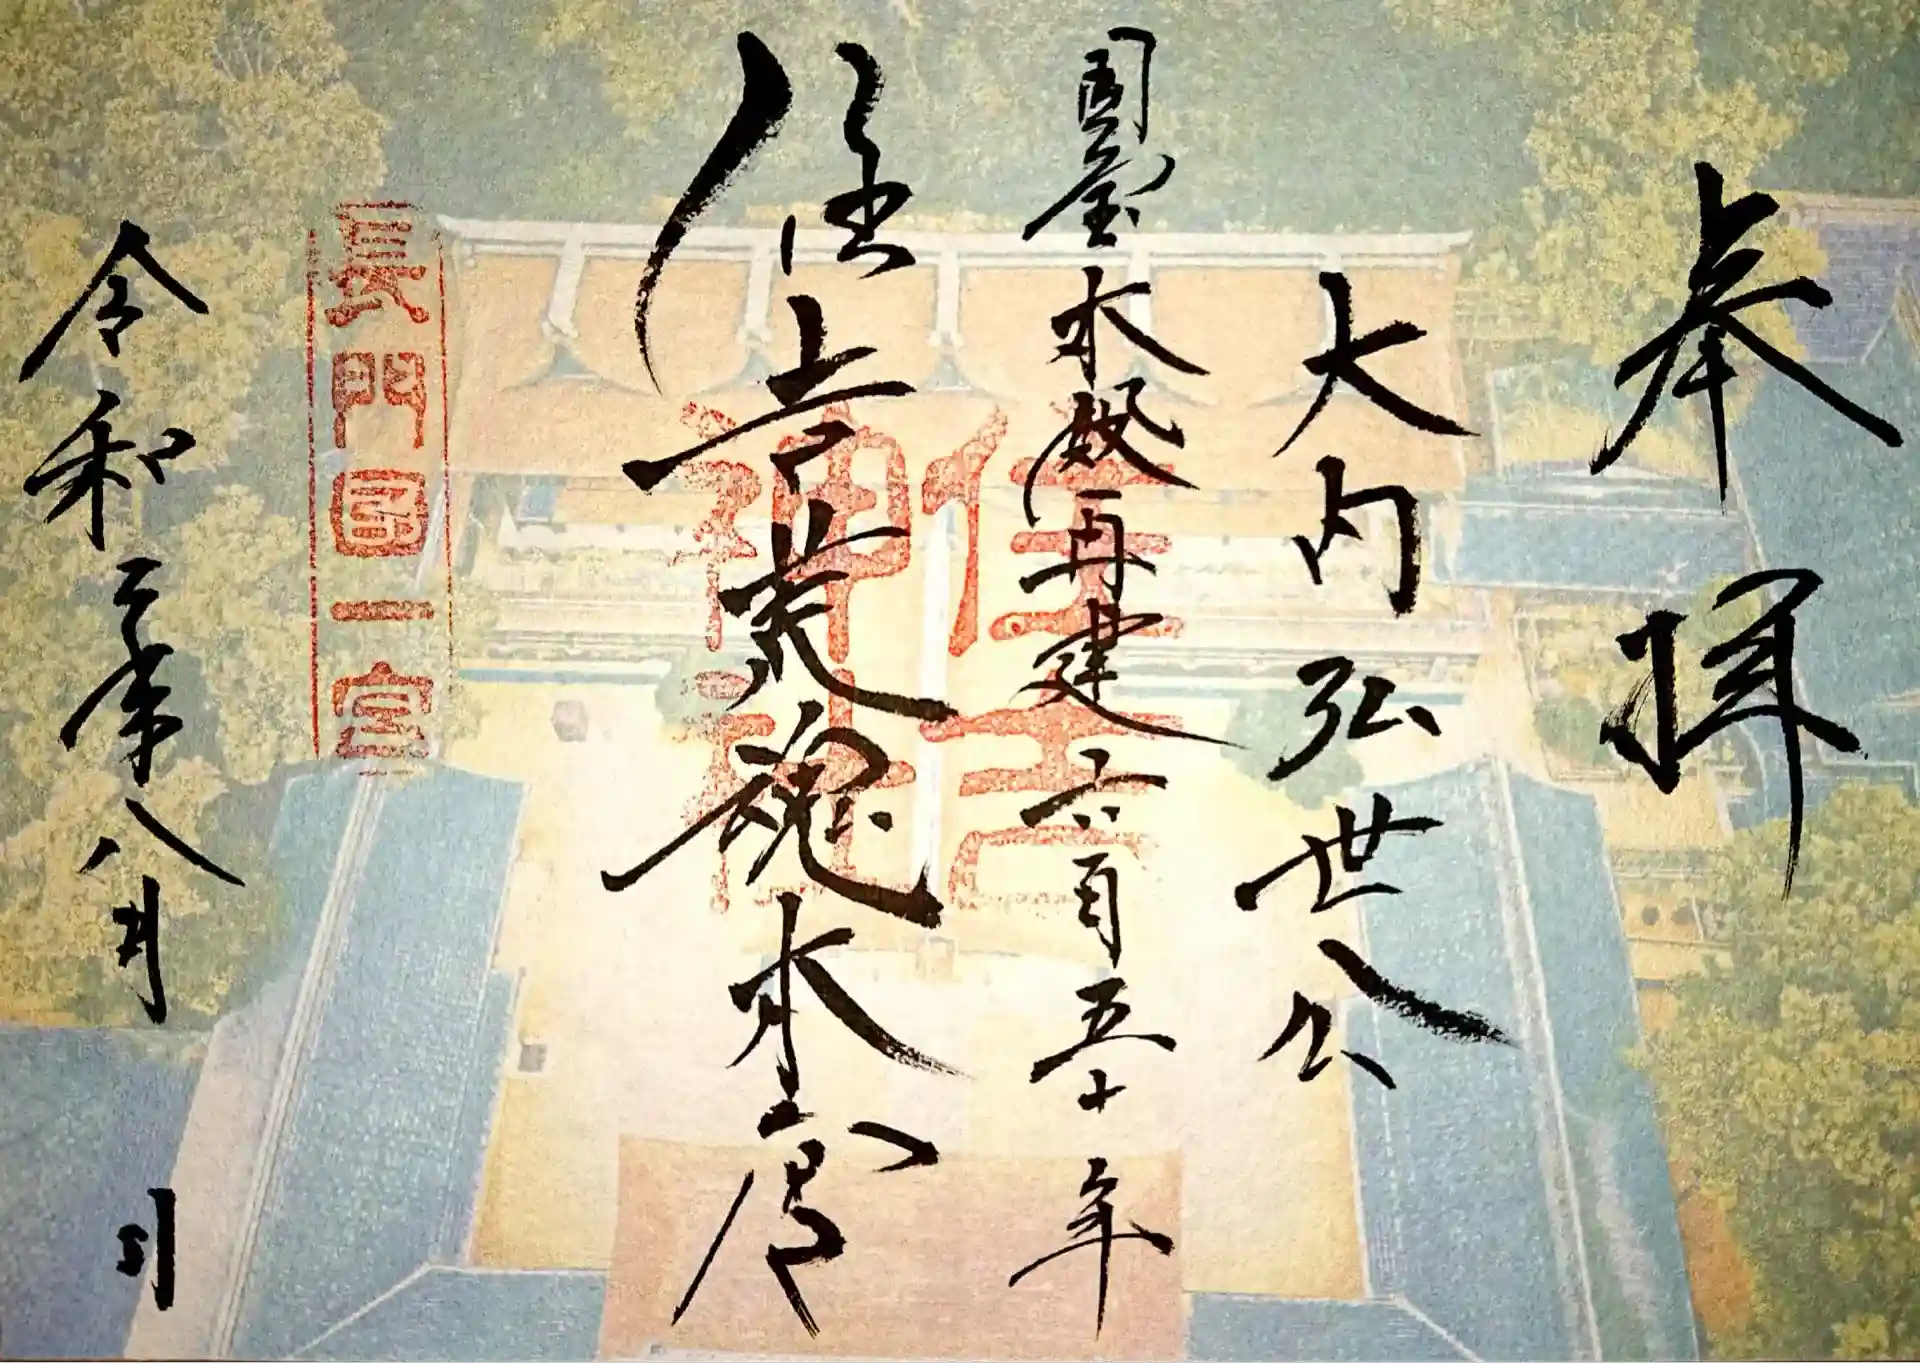 奉拝
大内弘世公
国宝本殿再建六百五十年
住吉荒魂本宮
住吉
神社
長門國一宮
令和二年八月 日